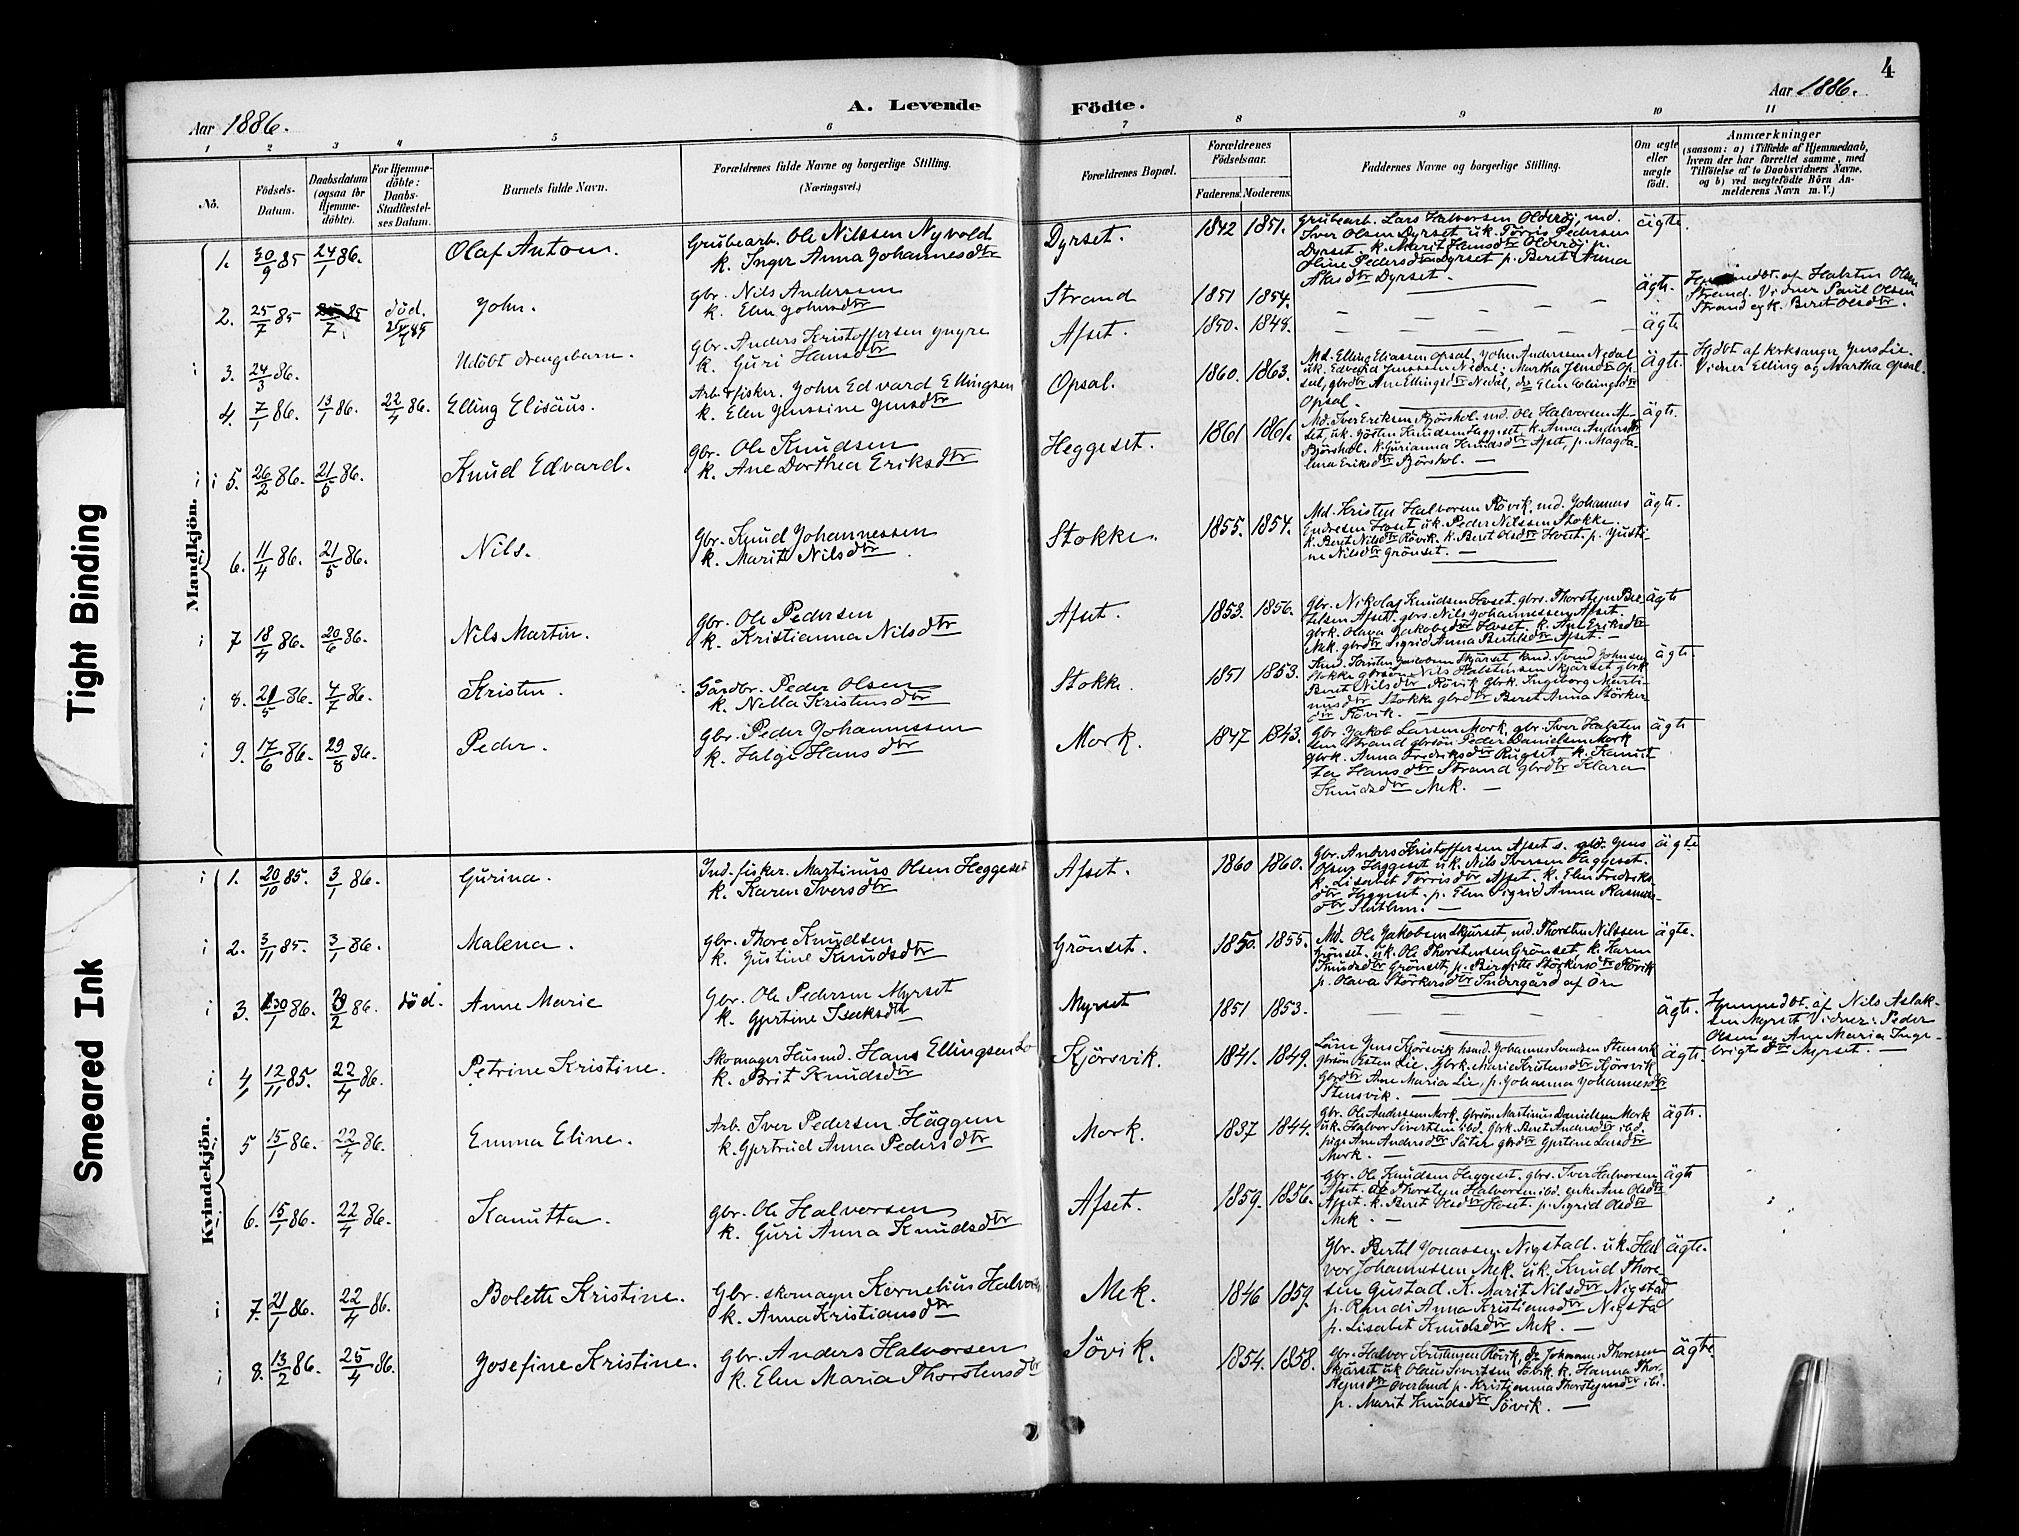 4
Aar 1886.
A. Levende Födte.
Aar 1886.
1 2 3 4 5 6 7 8 9 10 11
No.
Födsels-Datum.
Daabsdatum (ogsaa for Hjemme-döbte).
For Hjemme-döbte: Daabs-Stadfæstel-ses Datum.
Barnets fulde Navn.
Forældrenes fulde Navne og borgerlige Stilling.
(Næringsvei.)
Forældrenes Bopæl.
Forældrenes Födselsaar.
Faderens. Moderens.
Faddernes Navne og borgerlige Stilling.
Om ægte eller uægte født.
Anmærkninger
(saasom: a) i Tilfælde af Hjemmedaab, hvem der har forrettet samme, med Tilföielse af to Daabsvidners Navne. og b) ved uægtefödte Börn An-melderens Navn m. V.)
Mandkjön.
1. 30/9 85 24/1 86. Olaf Anton. Grubearb. Ole Nilssen Nyvold
k. Inger Anna Johannesdtr
Dyrset. 1842 1851.
Grubearb. Lars Halvorsen Olderöj, md.
Iver Olsen Dyrset uk. Törris Pedersen
Dyrset. k. Marit Hansdtr Olderöj p.
Oline Pedersdtr Dyrset p. Beret Anna
Dyrset.
ägte.
2. 25/7 85 död. John. gbr. Nils Andersen
k. Elen Johnsdtr
Strand 1851 1854. ägte.
af Halsten Olsen
Strand. Vidner Paul Olsen
Strand og k. Beret Olsdtr.
3. 24/3 86. Udöbt drengebarn. gbr. Anders Kristoffersen yngre
k. Guri Hansdtr
Afset. 1850. 1848. ägte
4. 7/1 86. 13/1 86. 22/4 86. Elling Elisäus. Arb. & fisker. John Edvard Ellingsen
k. Elen Jenssine Jensdtr
Opsal. 1860. 1863.
Md. Elling Eliassen Opsal, John Anderssen Nedal
uk. Edvard Jenssen Nedal; Martha Jensdtr Op-
sal, gbrdtr Ane Ellingsdtr Nedal, do Elen Ellingsdtr
Opsal.
ägte.
Hjdbt af kirksanger Jens Lie.
Vidner Elling og Martha Opsal.
5. 26/2 86. 21/5 86. Knud Edvard. gbr. Ole Knudsen
k. Ane Dorthea Eriksdtr
Heggeset. 1861 1861.
Md. Iver Eriksen Bjørshol. md. Ole Halvorsen Af-
set, uk. Josten Knudsen Heggeset k. Anna Andersdtr
Bjørshol. k. Gurianna Knudsdtr Afset, p. Magda-
lena Eriksdtr Bjørshol.
ägte.
6. 11/4 86. 21/5 86. Nils. Gbr. Knud Johannessen
k. Marit Nilsdtr
Stokke. 1855. 1854.
Md. Kristen Halvorsen Rövik, md. Johannes
Endresen Hoset uk. Peder Nilssen Stokke.
k. Beret Nilsdtr Rövik. k. Beret Olsdtr Hoset. p. Justi-
ne Nilsdtr Grönset.
ägte.
7 18/4 86. 20/6 86. Nils Martin. Gbr. Ole Pedersen
k. Kristianna Nilsdtr
Afset. 1853. 1856.
Gbr. Nikolaj Knudsen Hoset. gbrs. Thorstejn Ber-
telsen Afset. gbrs. Nils Johannessen Afset.
gbrk. Olava Jakobsdtr Hoset. k. Ane Eriksdtr
Mek. gbrdtr Sigrid Anna Bertelsdtr Afset.
ägte
8. 21/5 86. 4/7 86. Kristen. Gårdbr. Peder Olsen
k. Nella Kristensdtr
Stokke. 1851 1853.
Skjärset Svend Johnsen
Stokke gbrsön Nils Halstensen Skjärset gbrk
Beret Nilsdtr Rövik gbrk. Ingeborg Marti-
nusdtr Stokke gbrdtr Beret Anna Störker
dtr Rövik.
ägte.
9. 17/6 86. 29/8 86. Peder. Gbr. Peder Johannessen
k. Helge Hansdtr
Mork. 1847 1843.
Gbr. Jakob Larsen Mork, gbr. Iver Halsten
sen Strand gbrsön Peder Danielsen Mork
gbrk. Anna Fredriksdtr Rugset k. Kanut-
ta Hansdtr Strand gbrdtr Klara
Knudsdtr Mek.
ägte
Kvindekjön.
1. 20/10 85. 3/1 86. Gurina. Ind. fisker. Martinus Olsen Heggeset
k. Karen Iversdtr
Afset. 1860 1860.
Gbr. Anders Kristoffersen Afset s. Jens
Olsen Heggeset uk. Nils Iversen Heggeset.
k. Lisabet Torrisdtr Afset. k. Elen Fredriks-
dtr Heggeset. p. Elen Sigrid Anna Rasmus-
dtr
ägte
2. 3/11 85. 3/1 86. Malena. gbr. Thore Knudsen
k. Justine Knudsdtr
Grönset. 1850. 1855.
Md. Ole Jakobsen Skjärset, md. Thorsten Nilssen
Grönset. uk. Ole Thorstensen Grönset, k. Karen
Knudsdtr Grönset, p. Birgitte Störkersdtr Rövik
p. Olava Störkersdtr Indergård af Öre
ägte.
3. 30/1 86. död. Anne Marie Gbr. Ole Pedersen Myrset
k. Gjertine Isaksdtr
Myrset 1851 1853. ägte.
Hjemmedbt. af Nils Aslak-
sen Myrset Vidner: Peder
Olsen og Ane Maria Inge-
brigtsdtr Myrset.
4 12/11 85. 22/4 86. Petrine Kristine. Skomager Husmd. Hans Ellingsen Lo
k. Brit Knudsdtr
Kjörsvik. 1841. 1849.
Jens Kjörsvik husmd. Johannes Svendsen Stensvik
gbrsön Esten Lie. Gbrk. Marie Kristensdtr Kjörsvik
Gbrdtr Ane Maria Lie, p. Johanna Johannesdtr
Stensvik.
ägte.
5 15/1 86. 22/4 86. Emma Eline. Arb. Iver Pedersen Häggem
k. Gjertrud Anna Pedersdtr
Mork. 1837 1844.
gbr. Ole Anderssen Mork. Gbrsön Martinus Danielsen Mork
uk. Halvor Sivertsen ibd. Gbrk. Beret Andersdtr ibd.
pige Ane Andersdtr Säter gbrdtr Gjertine Larsdtr
Mork.
ägte.
6. 15/1 86. 22/4 86. Kanutta. Gbr. Ole Halvorsen
k. Guri Anna Knudsdtr
Afset. 1859. 1856.
Gbr. Ole Knudsen Heggeset. gbrs. Iver Halvorsen
Afset. Thorstejn Halvorsen ibd. enke Ane Olsdtr
Afset. k. Beret Olsdtr Hoset. p. Sigrid Olsdtr
Mek.
ägte
7. 21/1 86. 22/4 86. Bolette Kristine. Gbr. skomager Kornelius Halvorsen
k. Anna Kristiansdtr
Mek. 1846 1859.
Gbr. Bertel Jonassen Nigstad. uk. Hal
vor Johannessen Mek. uk. Knud Thore
sen Gustad. K. Marit Nilsdtr Nigstad
p. Randi Anna Kristiansdtr Nigstad
p. Lisabet Knudsdtr Mek.
ägte.
8. 13/2 86. 25/4 86. Josefine Kristine. Gbr. Anders Halvorsen
k. Elen Maria Thorstensdtr
Sövik. 1854. 1858.
Gbr. Halvor Kristensen Rövik, do Johannes Thoresen
Skjärset uk Olaus Sivertsen Sövik k. Hanna Thor-
stejnsdtr Overland p. Kristjanna Thorstejnsdtr ibd.
p. Marit Knudsdtr Sövik.
ägte.
Tight Binding
Smeared Ink